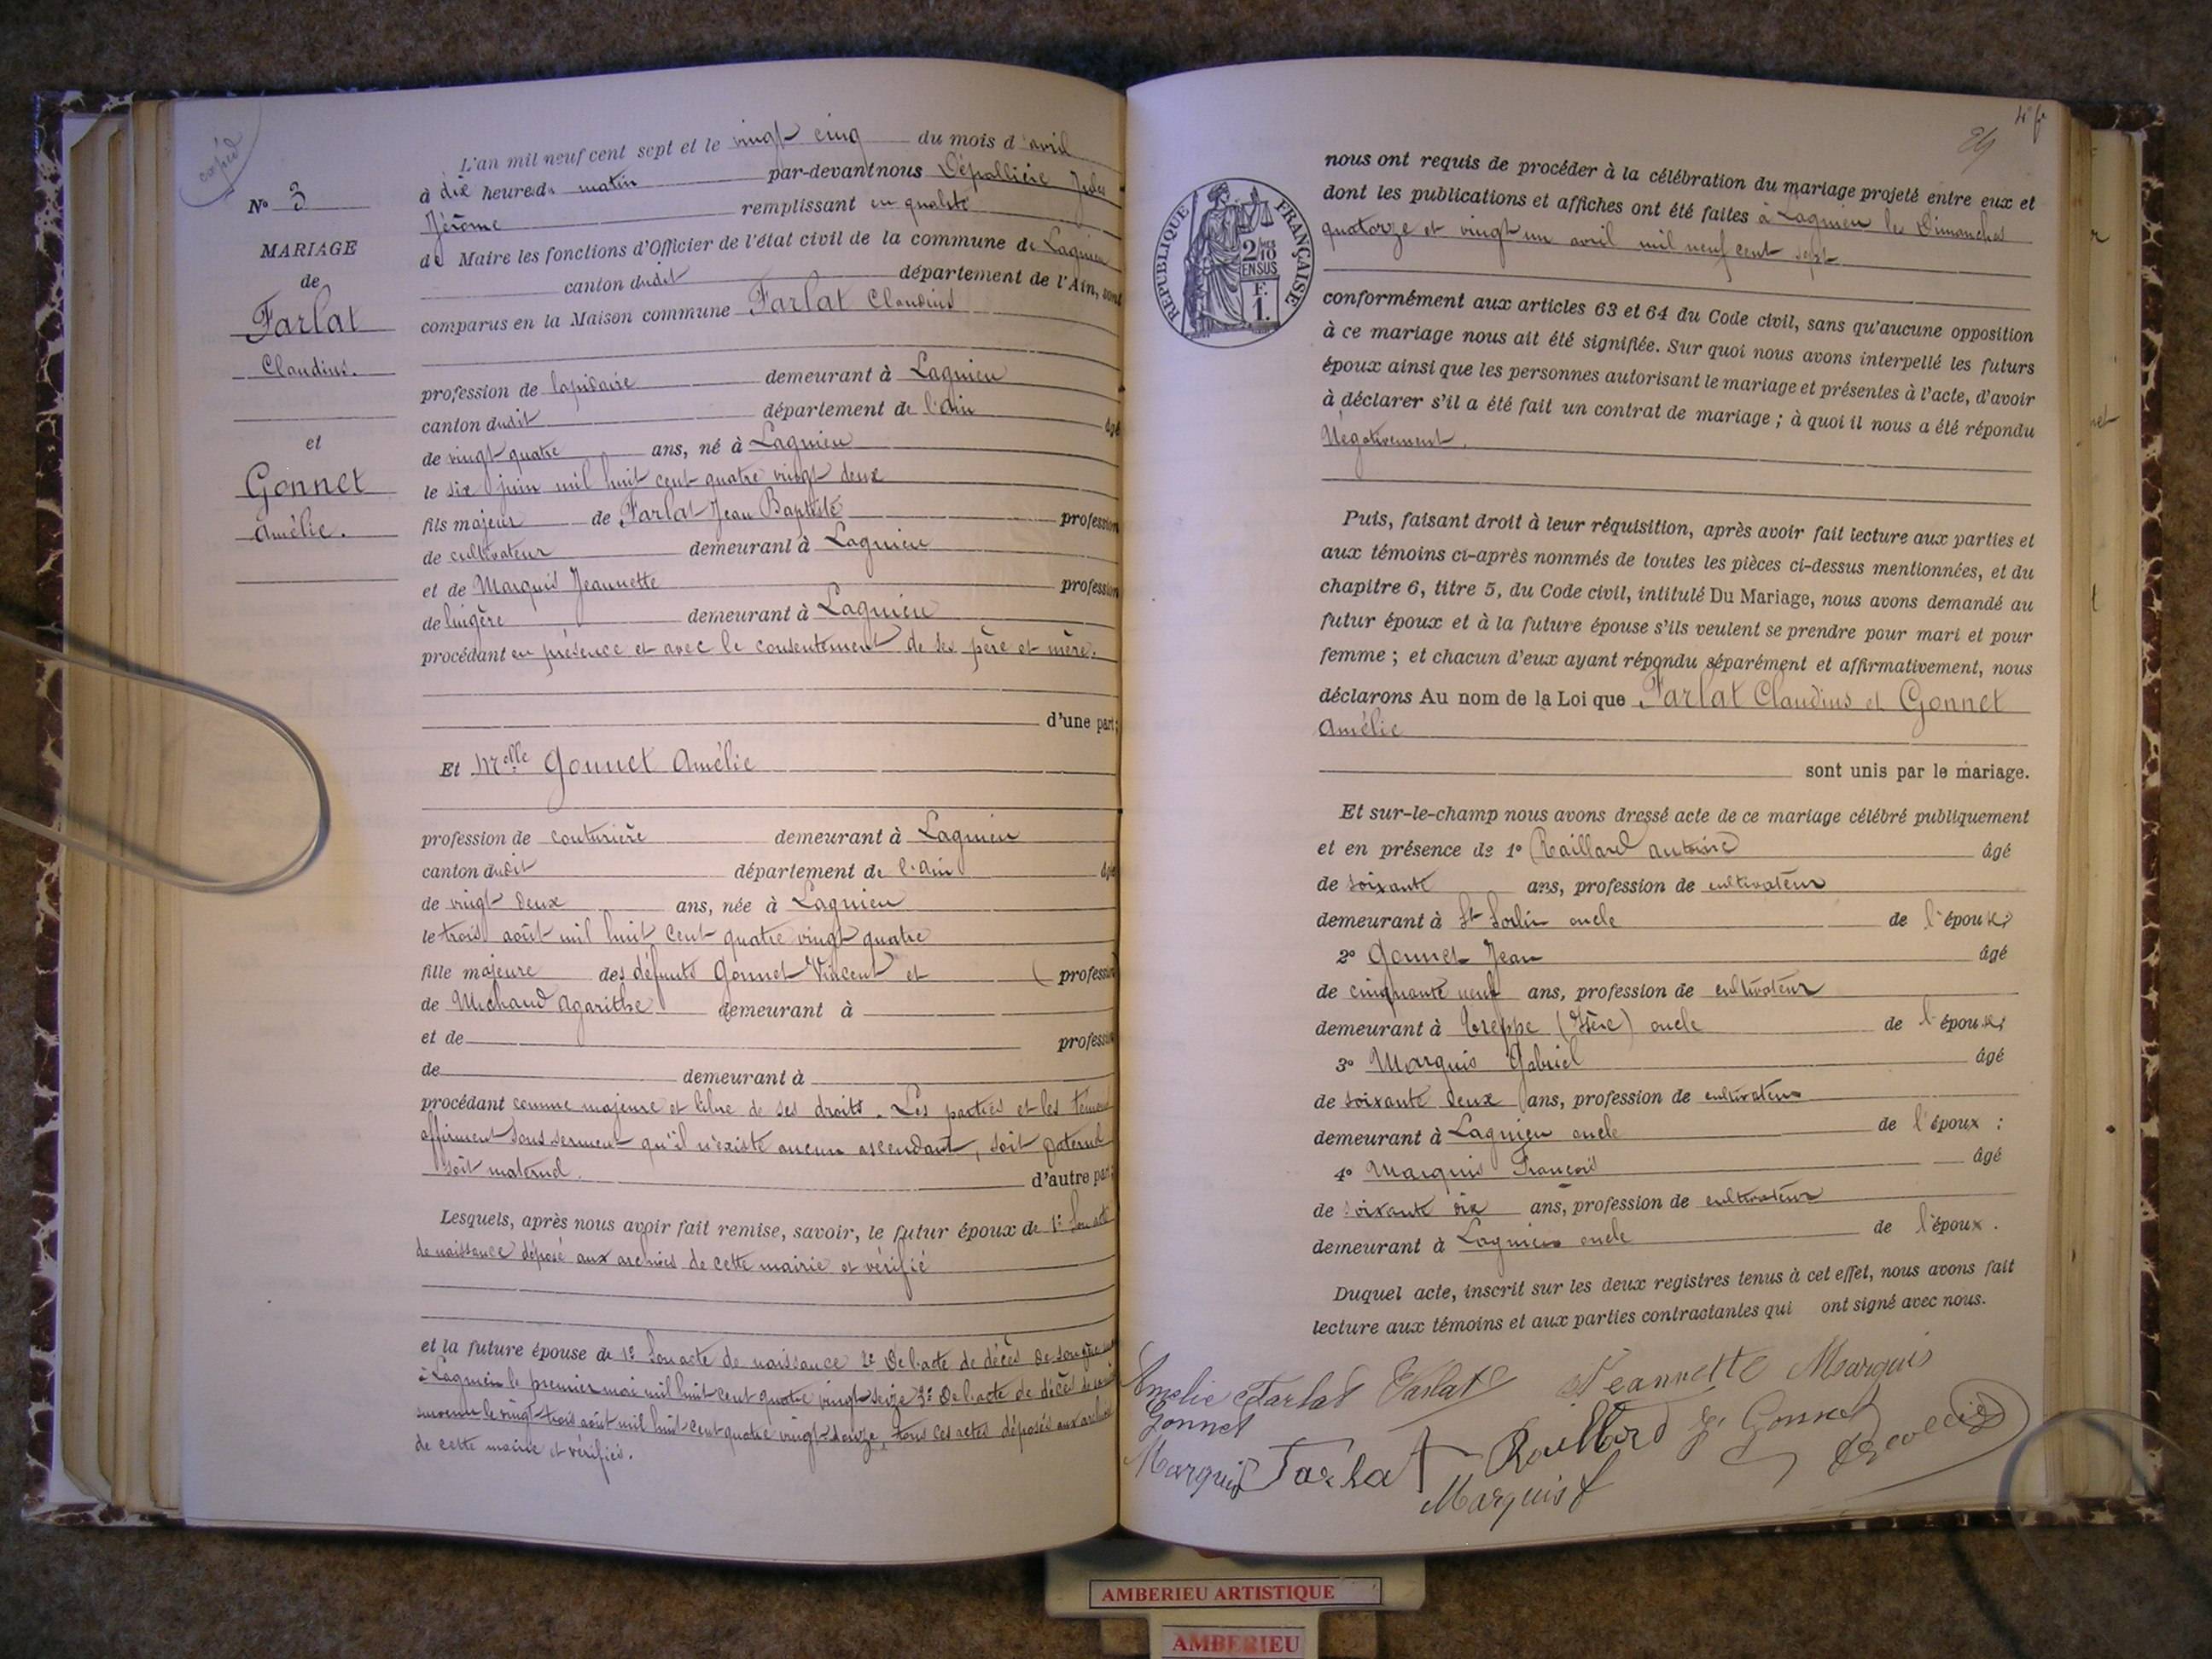 copié
N° 3
MARIAGE
de
Farlat
Claudius.
et
Gonnet
Amélie.
L'an mil neuf cent sept et le vingt cinq du mois d'avril
à dix heures du matin par-devant nous Dépallière Jules
Jérôme remplissant en qualité
de Maire les fonctions d'Officier de l'état civil de la commune de Lagnieu
canton dudit département de l'Ain, sont
comparus en la Maison commune Farlat Claudius
profession de lapidaire demeurant à Lagnieu
canton dudit département de l'Ain âgé
de vingt quatre ans, né à Lagnieu
le six juin mil huit cent quatre vingt deux
fils majeur de Farlat Jean Baptiste profession
de cultivateur demeurant à Lagnieu
et de Marquis Jeannette profession
de lingère demeurant à Lagnieu
procédant en présence et avec le consentement de ses père et mère.
d'une part;
Et Melle Gonnet Amélie
profession de couturière demeurant à Lagnieu
canton dudit département de l'Ain âgé
de vingt deux ans, née à Lagnieu
le trois août mil huit cent quatre vingt quatre
fille majeure des défunts Gonnet Vincent et ( profession
de Michaud Agarithe demeurant à
et de profession
de demeurant à
procédant comme majeure et libre de ses droits. Les parties et les témoins
affirment sous serment qu'il n'existe aucun ascendant, soit paternel
soit maternel. d'autre part;
Lesquels, après nous avoir fait remise, savoir, le futur époux de 1° Son acte
de naissance déposé aux archives de cette mairie et vérifié
et la future épouse de 1° Son acte de naissance 2° De l'acte de décès de son père
à Lagnieu le premier mai mil huit cent quatre vingt seize 3° De l'acte de décès de sa
survenu le vingt trois août mil huit cent quatre vingt douze, tous ces actes déposés aux archives
de cette mairie et vérifiés.
nous ont requis de procéder à la célébration du mariage projeté entre eux et
dont les publications et affiches ont été faites à Lagnieu les Dimanches
quatorze et vingt un avril mil neuf cent sept
RÉPUBLIQUE FRANÇAISE
2/10
EN SUS
F.
1.
conformément aux articles 63 et 64 du Code civil, sans qu'aucune opposition
à ce mariage nous ait été signifiée. Sur quoi nous avons interpellé les futurs
époux ainsi que les personnes autorisant le mariage et présentes à l'acte, d'avoir
à déclarer s'il a été fait un contrat de mariage ; à quoi il nous a été répondu
Négativement.
Puis, faisant droit à leur réquisition, après avoir fait lecture aux parties et
aux témoins ci-après nommés de toutes les pièces ci-dessus mentionnées, et du
chapitre 6, titre 5, du Code civil, intitulé Du Mariage, nous avons demandé au
futur époux et à la future épouse s'ils veulent se prendre pour mari et pour
femme ; et chacun d'eux ayant répondu séparément et affirmativement, nous
déclarons Au nom de la Loi que Farlat Claudius et Gonnet
Amélie
sont unis par le mariage.
Et sur-le-champ nous avons dressé acte de ce mariage célébré publiquement
et en présence de 1° Raillard Antoine âgé
de soixante ans, profession de cultivateur
demeurant à St Sorlin oncle de l'épouse;
2° Gonnet Jean âgé
de cinquante neuf ans, profession de cultivateur
demeurant à Creppe (Isère) oncle de l'épouse;
3° Marquis Gabriel âgé
de soixante deux ans, profession de cultivateur
demeurant à Lagnieu oncle de l'époux :
4° Marquis François âgé
de soixante dix ans, profession de cultivateur
demeurant à Lagnieu oncle de l'époux.
Duquel acte, inscrit sur les deux registres tenus à cet effet, nous avons fait
lecture aux témoins et aux parties contractantes qui ont signé avec nous.
Amelie Farlat Farlat Jeannette Marquis
Gonnet
Marquis Farlat Raillard Gonnet
Marquis f
AMBERIEU ARTISTIQUE
AMBERIEU